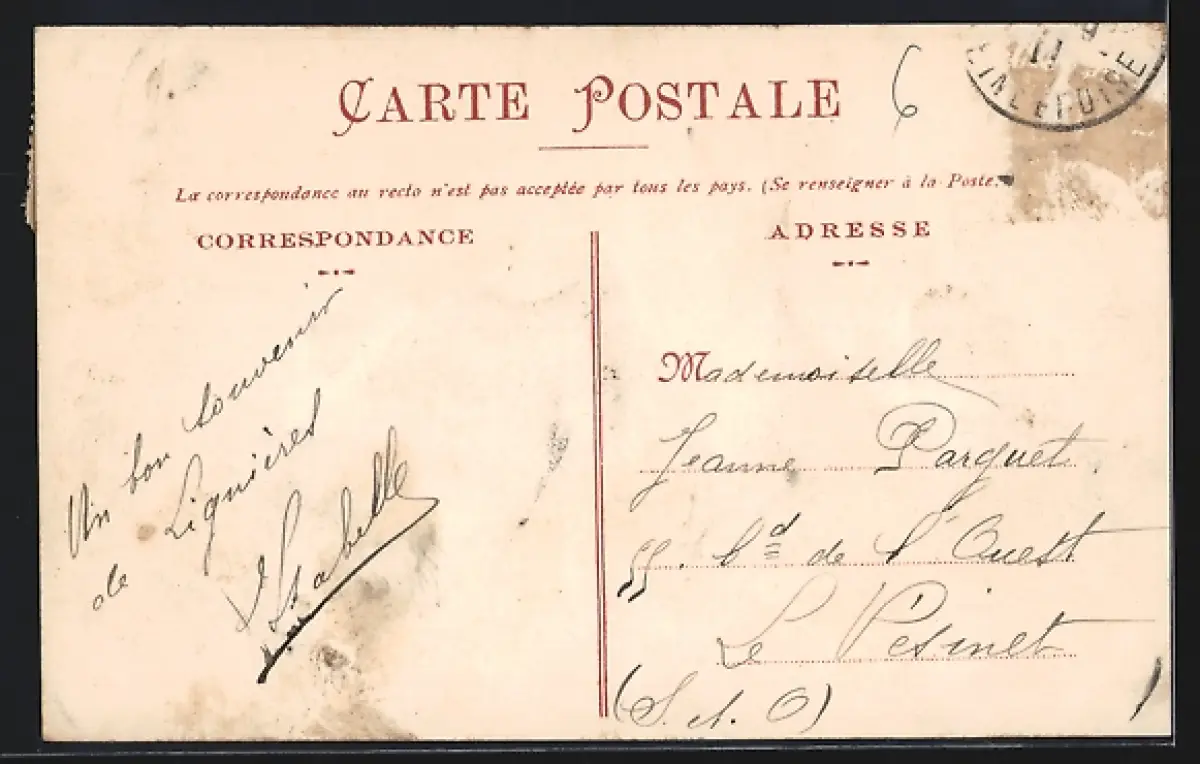 CARTE POSTALE
6
La correspondance au recto n'est pas acceptée par tous les pays. (Se renseigner à la Poste.
CORRESPONDANCE
Un bon souvenir
de Lignières
Isabelle
ADRESSE
Mademoiselle
Jeanne Parquet
55. Bd de l'Ouest
Le Vésinet
(S. et O)
11